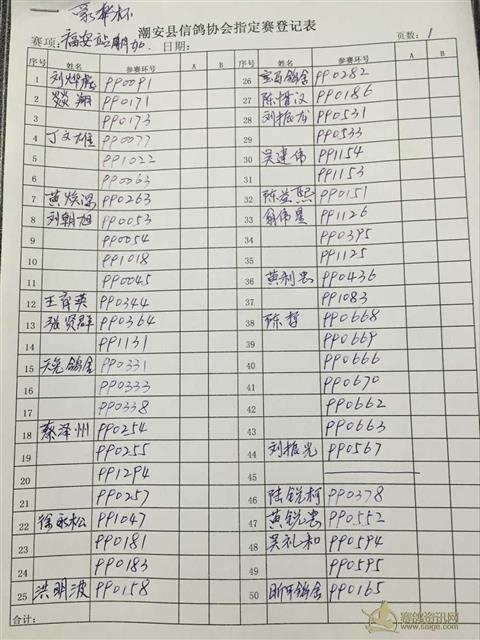 潮安县信鸽协会指定赛登记表
赛项: 福安站 日期: 页数: 1
序号 姓名 参赛环号 A B 序号 姓名 参赛环号 A B
1 PP0091 26 PP0282
2 PP0171 27 陈惜汉 PP0186
3 PP0173 28 刘振龙 PP0531
4 丁文雄 PP0077 29 PP0533
5 PP1022 30 吴建伟 PP1154
6 PP0063 31 PP1153
7 黄焕深 PP0263 32 陈益熙 PP0151
8 刘朝旭 PP0053 33 翁伟 PP1126
9 PP0054 34 PP0395
10 PP1018 35 PP1125
11 PP0045 36 黄利忠 PP0436
12 王育英 PP0344 37 PP1083
13 张贤群 PP0364 38 陈哲 PP0668
14 PP1131 39 PP0669
15 天克鸽舍 PP0331 40 PP0666
16 PP0333 41 PP0670
17 PP0338 42 PP0662
18 蔡泽州 PP0254 43 PP0663
19 PP0255 44 刘振光 PP0567
20 PP1294 45
21 PP0257 46 陆锐柯 PP0378
22 徐永松 PP1047 47 黄锐忠 PP0552
23 PP0181 48 吴礼和 PP0594
24 PP0183 49 PP0595
25 洪明波 PP0158 50 鸽舍 PP0165
合计:
赛鸽资讯网
www.saige.com